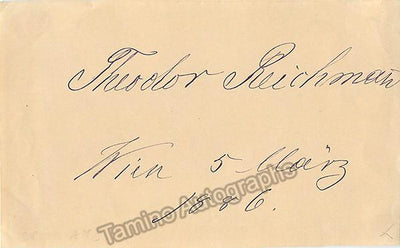 Theodor Reichmann
Wien 5 März
1886.
Tamino Autographs